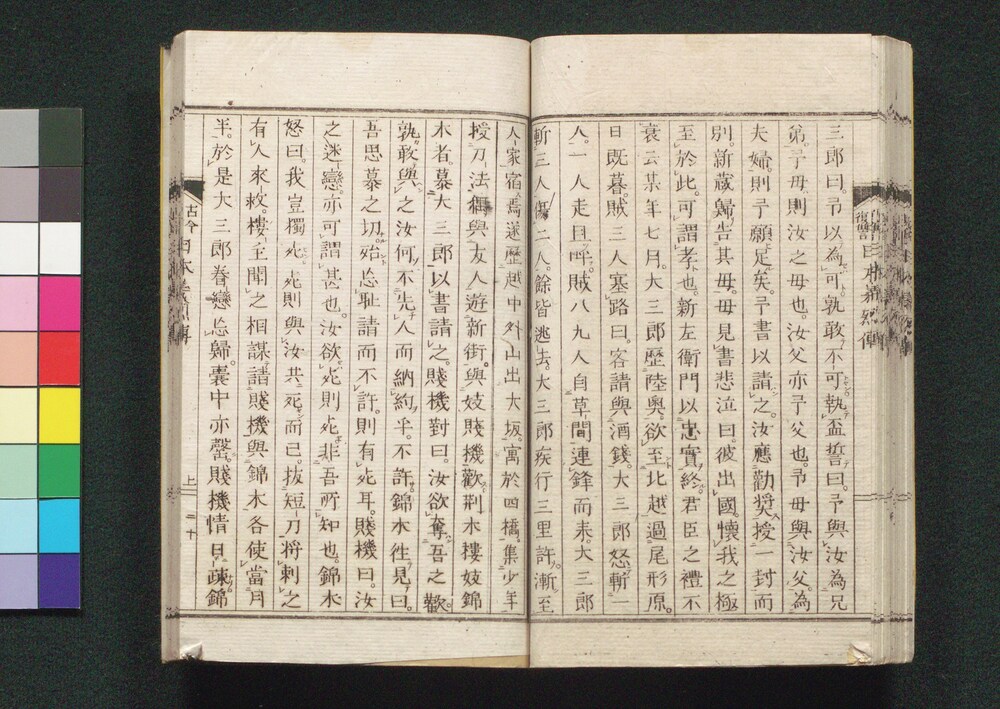 三郎曰。予以為可。孰敢不可。執盃誓曰。予與汝為兄
弟。予母則汝之母也。汝父亦予父也。予母與汝父為
夫婦。則予願足矣。予書以請之。汝應勤奬。授一封而
別。新蔵歸告其母。母見書悲泣曰。彼出國。懷我之極
至於此。可謂孝也。新左衛門以忠實終。君臣之禮不
衰云。某年七月。大三郎歷陸奧。欲至北越過尾形原。
日既暮。賊三人塞路曰。客請與酒錢。大三郎怒斬一
人。一人走且呼。賊八九人自草間連鋒而来。大三郎
斬三人傷二人。餘皆逃去。大三郎疾行三里許。漸至
人家宿焉。遂歷越中外山出大坂。寓於四橋。集少年
授刀法。偶與友人遊新街。與妓賤機歡。荆木樓妓錦
木者。慕大三郎以書請之。賤機對曰。汝欲奪吾之歡。
孰敢與之。汝何不先人而納約乎。不許。錦木徃見曰。
吾思慕之切。殆忘耻請而不許。則有死耳。賤機曰。汝
之迷戀。亦可謂甚也。汝欲死則死。非吾所知也。錦木
怒曰。我豈獨死。死則與汝共死而已。拔短刀将刺之
有人來救。樓主聞之相謀。請賤機與錦木各使當月
半。於是大三郎眷戀忘歸。囊中亦罄。賤機情日疎。錦
古今日本 上 二十